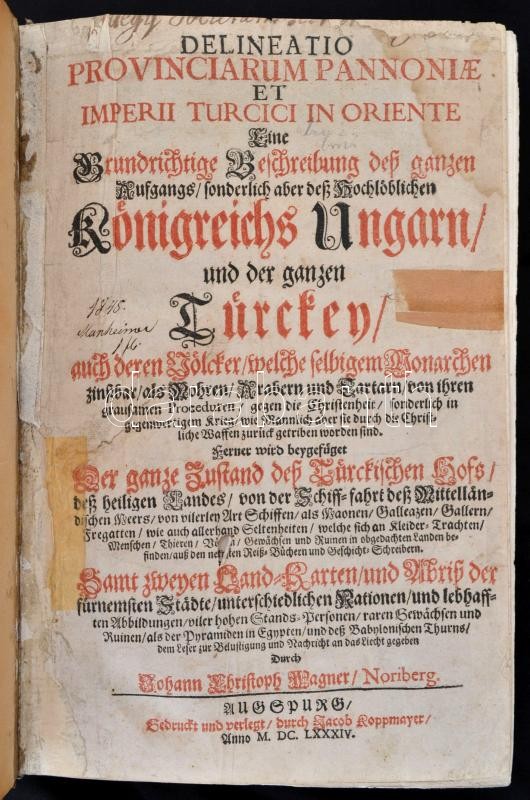 DELINEATIO
PROVINCIARUM PANNONIÆ
ET
IMPERII TURCICI IN ORIENTE
Eine
Grundrichtige Beschreibung deß ganzen
Aufgangs/ sonderlich aber deß Hochlöblichen
Königreichs Ungarn/
und der ganzen
Türckey/
1845.
Manheimer
auch deren Völcker/ welche selbigem Monarchen
zinßbar/ als Mohren/ Arabern und Tartarn/ von ihren
grausamen Proceduren/ gegen die Christenheit/ sonderlich in
gegenwertigem Krieg/ wie Mannlich aber sie durch die Christ-
liche Waffen zurück getriben worden sind.
Ferner wird beygefüget
Der ganze Zustand deß Türckischen Hofs/
deß heiligen Landes/ von der Schiff-fahrt deß Mittellän-
dischen Meers/ von vilerley Art Schiffen/ als Maonen/ Galleazen/ Gallern/
Fregatten/ wie auch allerhand Seltenheiten/ welche sich an Kleider-Trachten/
Menschen/ Thieren/ Gewächsen und Ruinen in obgedachten Landen be-
finden/ auß den Reiß-Büchern und Geschicht-Schreibern.
Samt zweyen Land-Karten/ und Abriß der
fürnemsten Städte/ unterschiedlichen Nationen/ und lebhaff-
ten Abbildungen/ viler hohen Stands-Personen/ raren Gewächsen und
Ruinen/ als der Pyramiden in Egypten/ und deß Babylonischen Thurns/
dem Leser zur Belustigung und Nachricht an das Liecht gegeben
Durch
Johann Christoph Wagner/ Noriberg.
AUGSPURG/
Gedruckt und verlegt/ durch Jacob Koppmayer/
Anno M. DC. LXXXIV.